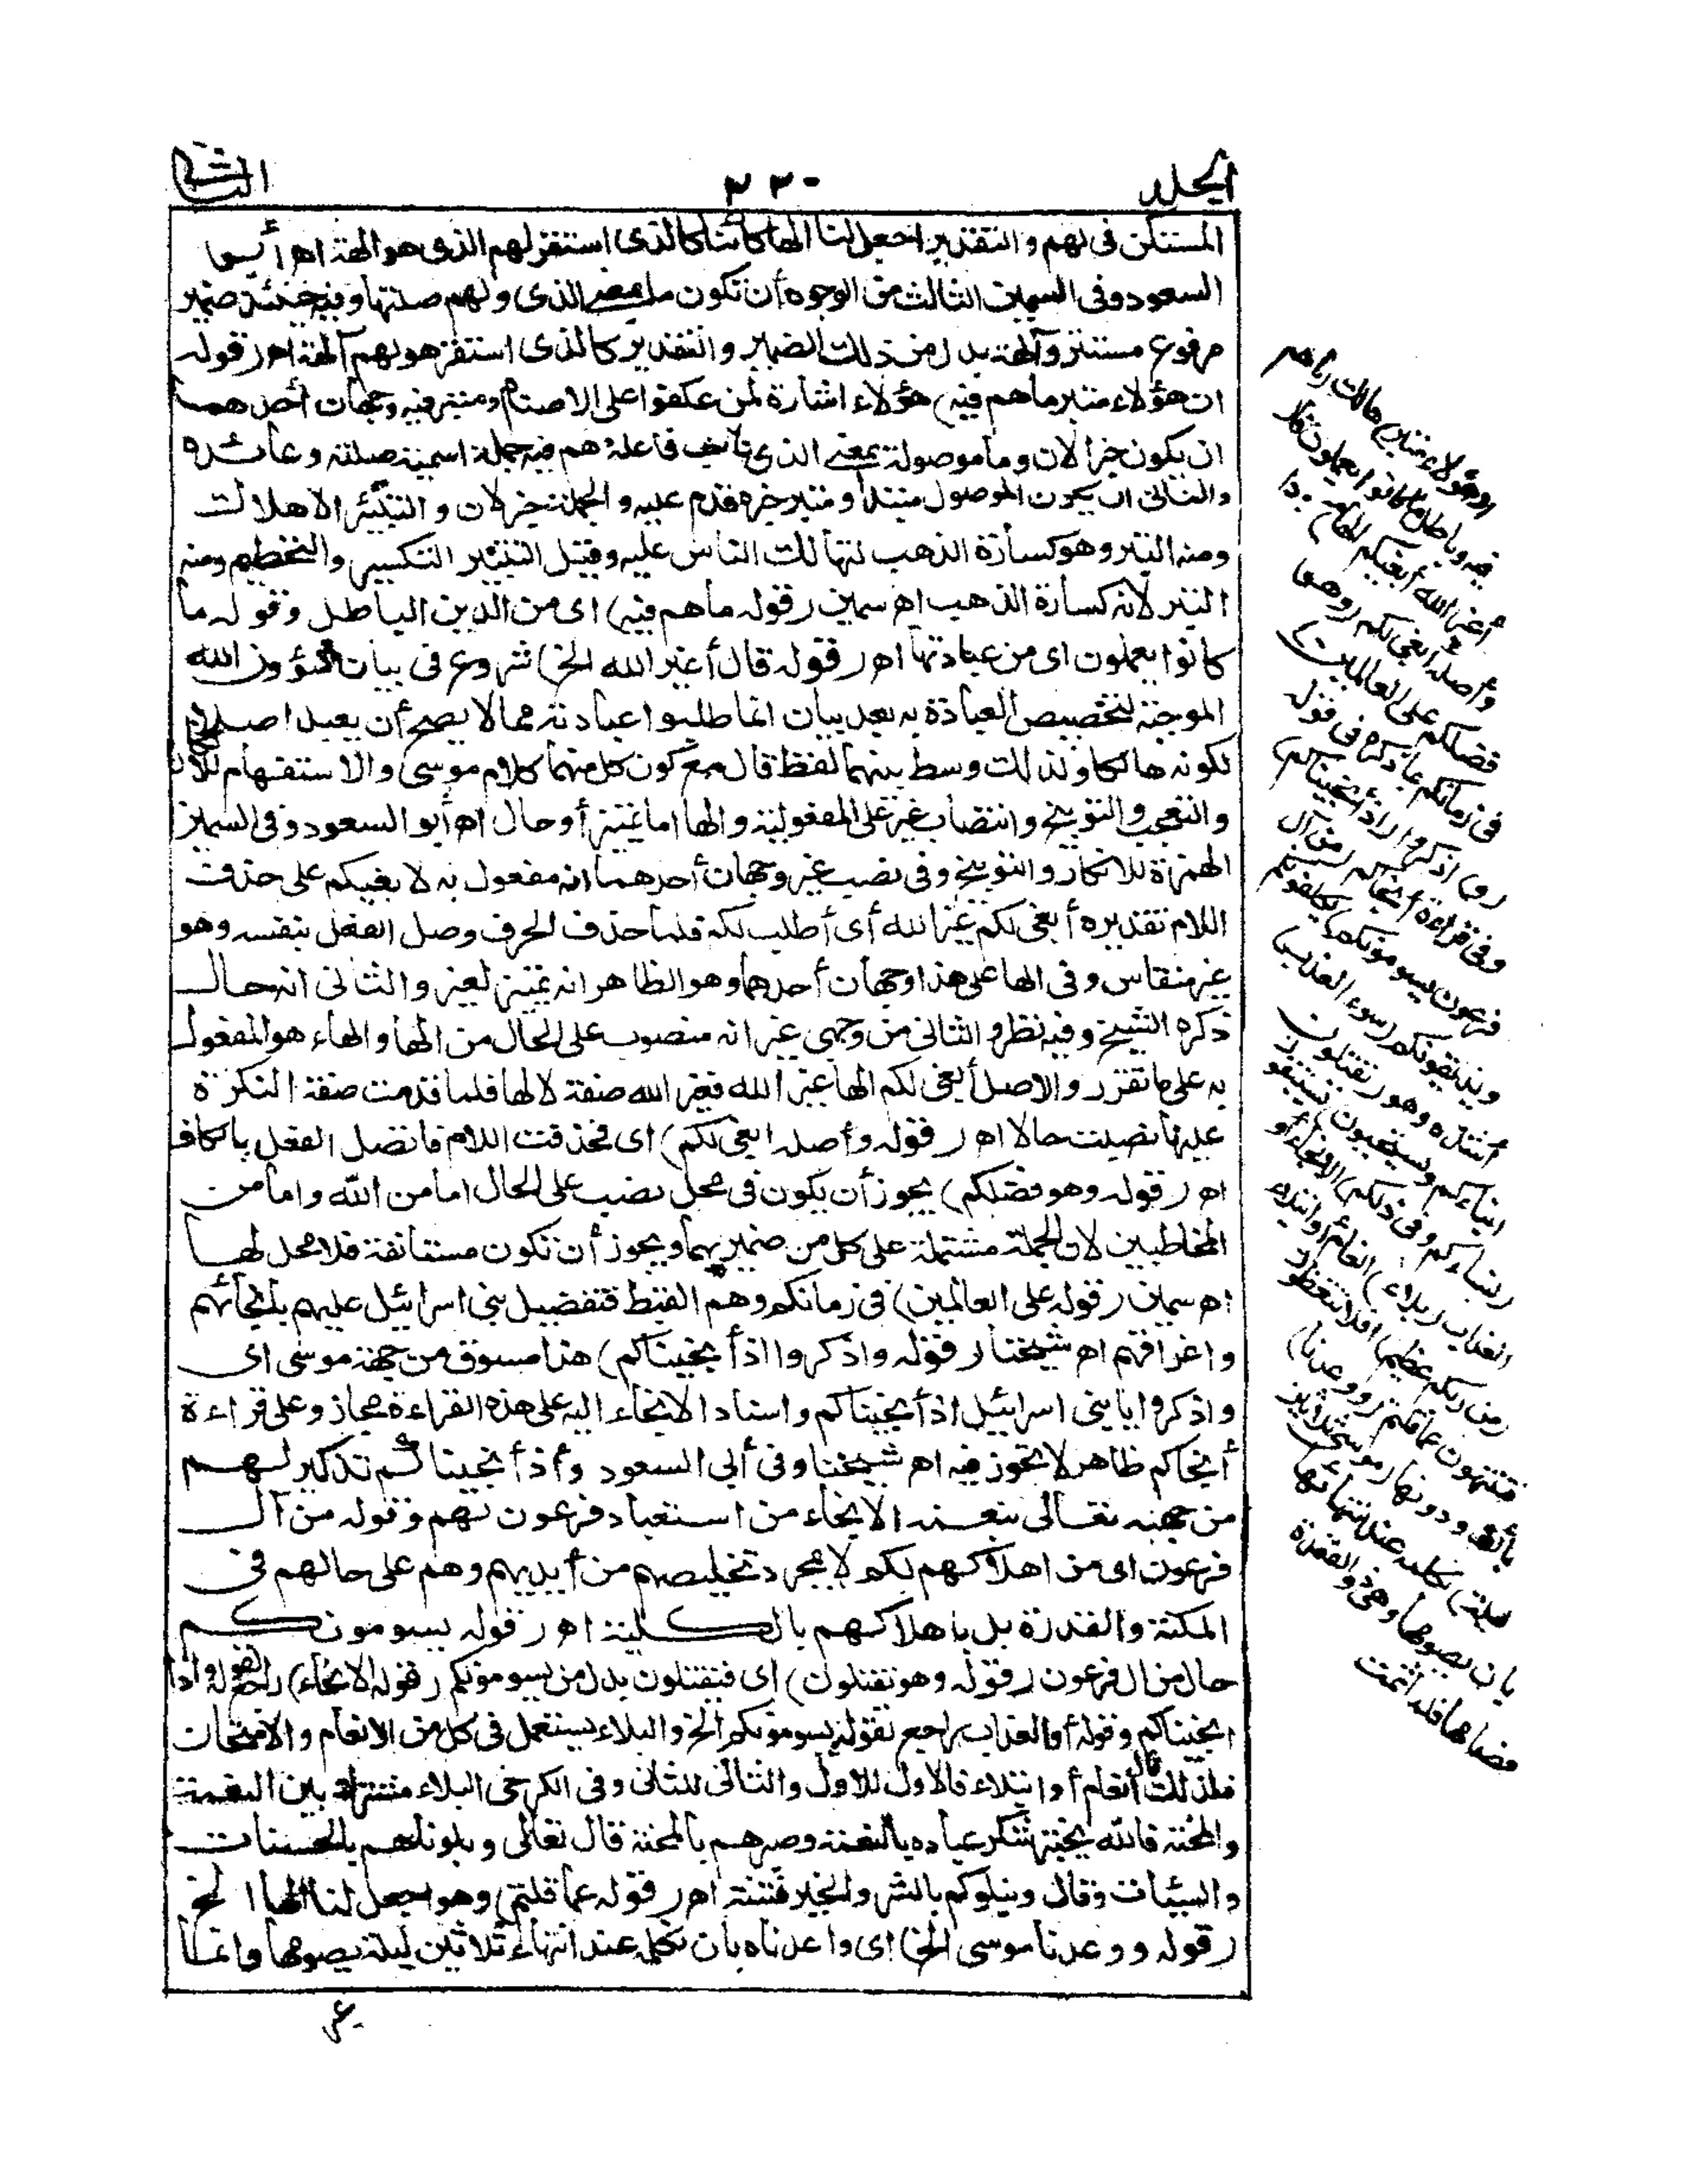 الجلد
٢٢٠
الثانی
المستكن فى لهم والتقدير اجعل لنا الها كائنا كالذى استقر لهم الذى هو الهة اه أبو
السعود وفى السمين الثالث من الوجوه أن تكون ما بمعنى الذى ولهم صلتها وفيه حينئذ ضمير
مرفوع مستتر وآلهة بدل من ذلك الضمير والتقدير كالذى استقر هو لهم آلهة اه (قوله
ان هؤلاء متبر ما هم فيه) هؤلاء اشارة لمن عكفوا على الاصنام ومتبر فيه وجهان أحدهما
ان يكون خبرا لان وما موصولة بمعنى الذى نائب فاعله هم فيه جملة اسمية صلته وعائده
والثانى ان يكون الموصول مبتدأ ومتبر خبره قدم عليه والجملة خبر لان والتتبير الاهلاك
ومنه التبر وهو كسارة الذهب لتهالك الناس عليه وقيل التتبير التكسير والتحطيم ومنه
التبر لانه كسارة الذهب اه سمين (قوله ما هم فيه) اى من الدين الباطل وقوله ما
كانوا يعملون اى من عبادتها اه (قوله قال أغير الله الخ) شروع فى بيان شؤون الله
الموجبة لتخصيص العبادة به بعد بيان انما طلبوا عبادته مما لا يصح أن يعبد اصلا
لكونه هالكا ولذلك وسط بينهما لفظ قال مع كون كل منهما كلام موسى والاستفهام للانكار
والتعجب والتوبيخ وانتصاب غير على المفعولية والها اما تمييز أو حال اه أبو السعود وفى السمين
الهمزة للانكار والتوبيخ وفى نصب غير وجهان أحدهما انه مفعول به لابغيكم على حذف
اللام تقديره أبغى لكم غير الله أى أطلب لكم فلما حذف الحرف وصل الفعل بنفسه وهو
غير منقاس وفى الها على هذا وجهان أحدهما وهو الظاهر انه تمييز لغير والثانى انه حال
ذكره الشيخ وفيه نظر والثانى من وجهى غير انه منصوب على الحال من الها والهاء هو المفعول
به على ما تقرر والاصل أبغى لكم الها غير الله فغير الله صفة لالها فلما قدمت صفة النكرة
عليها نصبت حالا اه (قوله وأصله ابغى لكم) اى فحذفت اللام فاتصل الفعل بالكاف
اه (قوله وهو فضلكم) يجوز أن يكون فى محل نصب على الحال اما من الله واما من
المخاطبين لان الجملة مشتملة على كل من ضميريهما ويجوز أن تكون مستأنفة فلا محل لها
اه سمين (قوله على العالمين) فى زمانكم وهم القبط فتفضيل بنى اسرائيل عليهم بانجائهم
واغراقهم اه شيخنا (قوله واذكروا اذ أنجيناكم) هذا مسوق من جهة موسى اى
واذكروا يا بنى اسرائيل اذ أنجيناكم واسناد الانجاء اليه على هذه القراءة مجاز وعلى قراءة
أنجاكم ظاهر لا تجوز فيه اه شيخنا وفى أبى السعود واذ أنجيناكم تذكير لهم
من جهته تعالى بنعمة الانجاء من استعباد فرعون لهم وقوله من آل
فرعون اى من اهلاكهم لكم لا بمجرد تخليصهم من أيديهم وهم على حالهم فى
المكنة والقدرة بل باهلاكهم بالكلية اه (قوله يسومونكم
حال من ال فرعون (قوله وهو تقتلون) اى فيقتلون بدل من يسومونكم (قوله الانجاء) راجع لقوله واذ
انجيناكم وقوله أو العذاب راجع لقوله يسومونكم الخ والبلاء يستعمل فى كل من الانعام والامتحان
فلذلك قال انعام أو ابتلاء فالاول للاول والثانى للثانى وفى الكرخى البلاء مشترك بين النعمة
والمحنة فالله يختبر شكر عباده بالنعمة وصبرهم بالمحنة قال تعالى وبلوناهم بالحسنات
والسيئات وقال ونبلوكم بالشر والخير فتنة اه (قوله عما قلتم) وهو اجعل لنا الها الخ
(قوله ووعدنا موسى الخ) اى واعدناه بان نكلمه عند انتهاء ثلاثين ليلة يصومها وانما
(ان هؤلاء متبر) هالك (ما هم
فيه وباطل ما كانوا يعملون قال
أغير الله أبغيكم الها) معبودا
وأصله ابغى لكم (وهو
فضلكم على العالمين)
فى زمانكم بما ذكره فى قوله
(و) اذكروا (اذ أنجيناكم)
وفى قراءة أنجاكم (من آل
فرعون يسومونكم) يكلفونكم
ويذيقونكم (سوء العذاب)
أشده وهو (يقتلون
ابناءكم ويستحيون) يستبقون
(نساءكم وفى ذلكم) الانجاء أو
العذاب (بلاء) انعام أو ابتلاء
(من ربكم عظيم) افلا تتعظون
فتنتهون عما قلتم (ووعدنا)
بألف ودونها (موسى ثلاثين
ليلة) نكلمه عند انتهائها
بان يصومها وهى ذو القعدة
فصامها فلما تمت